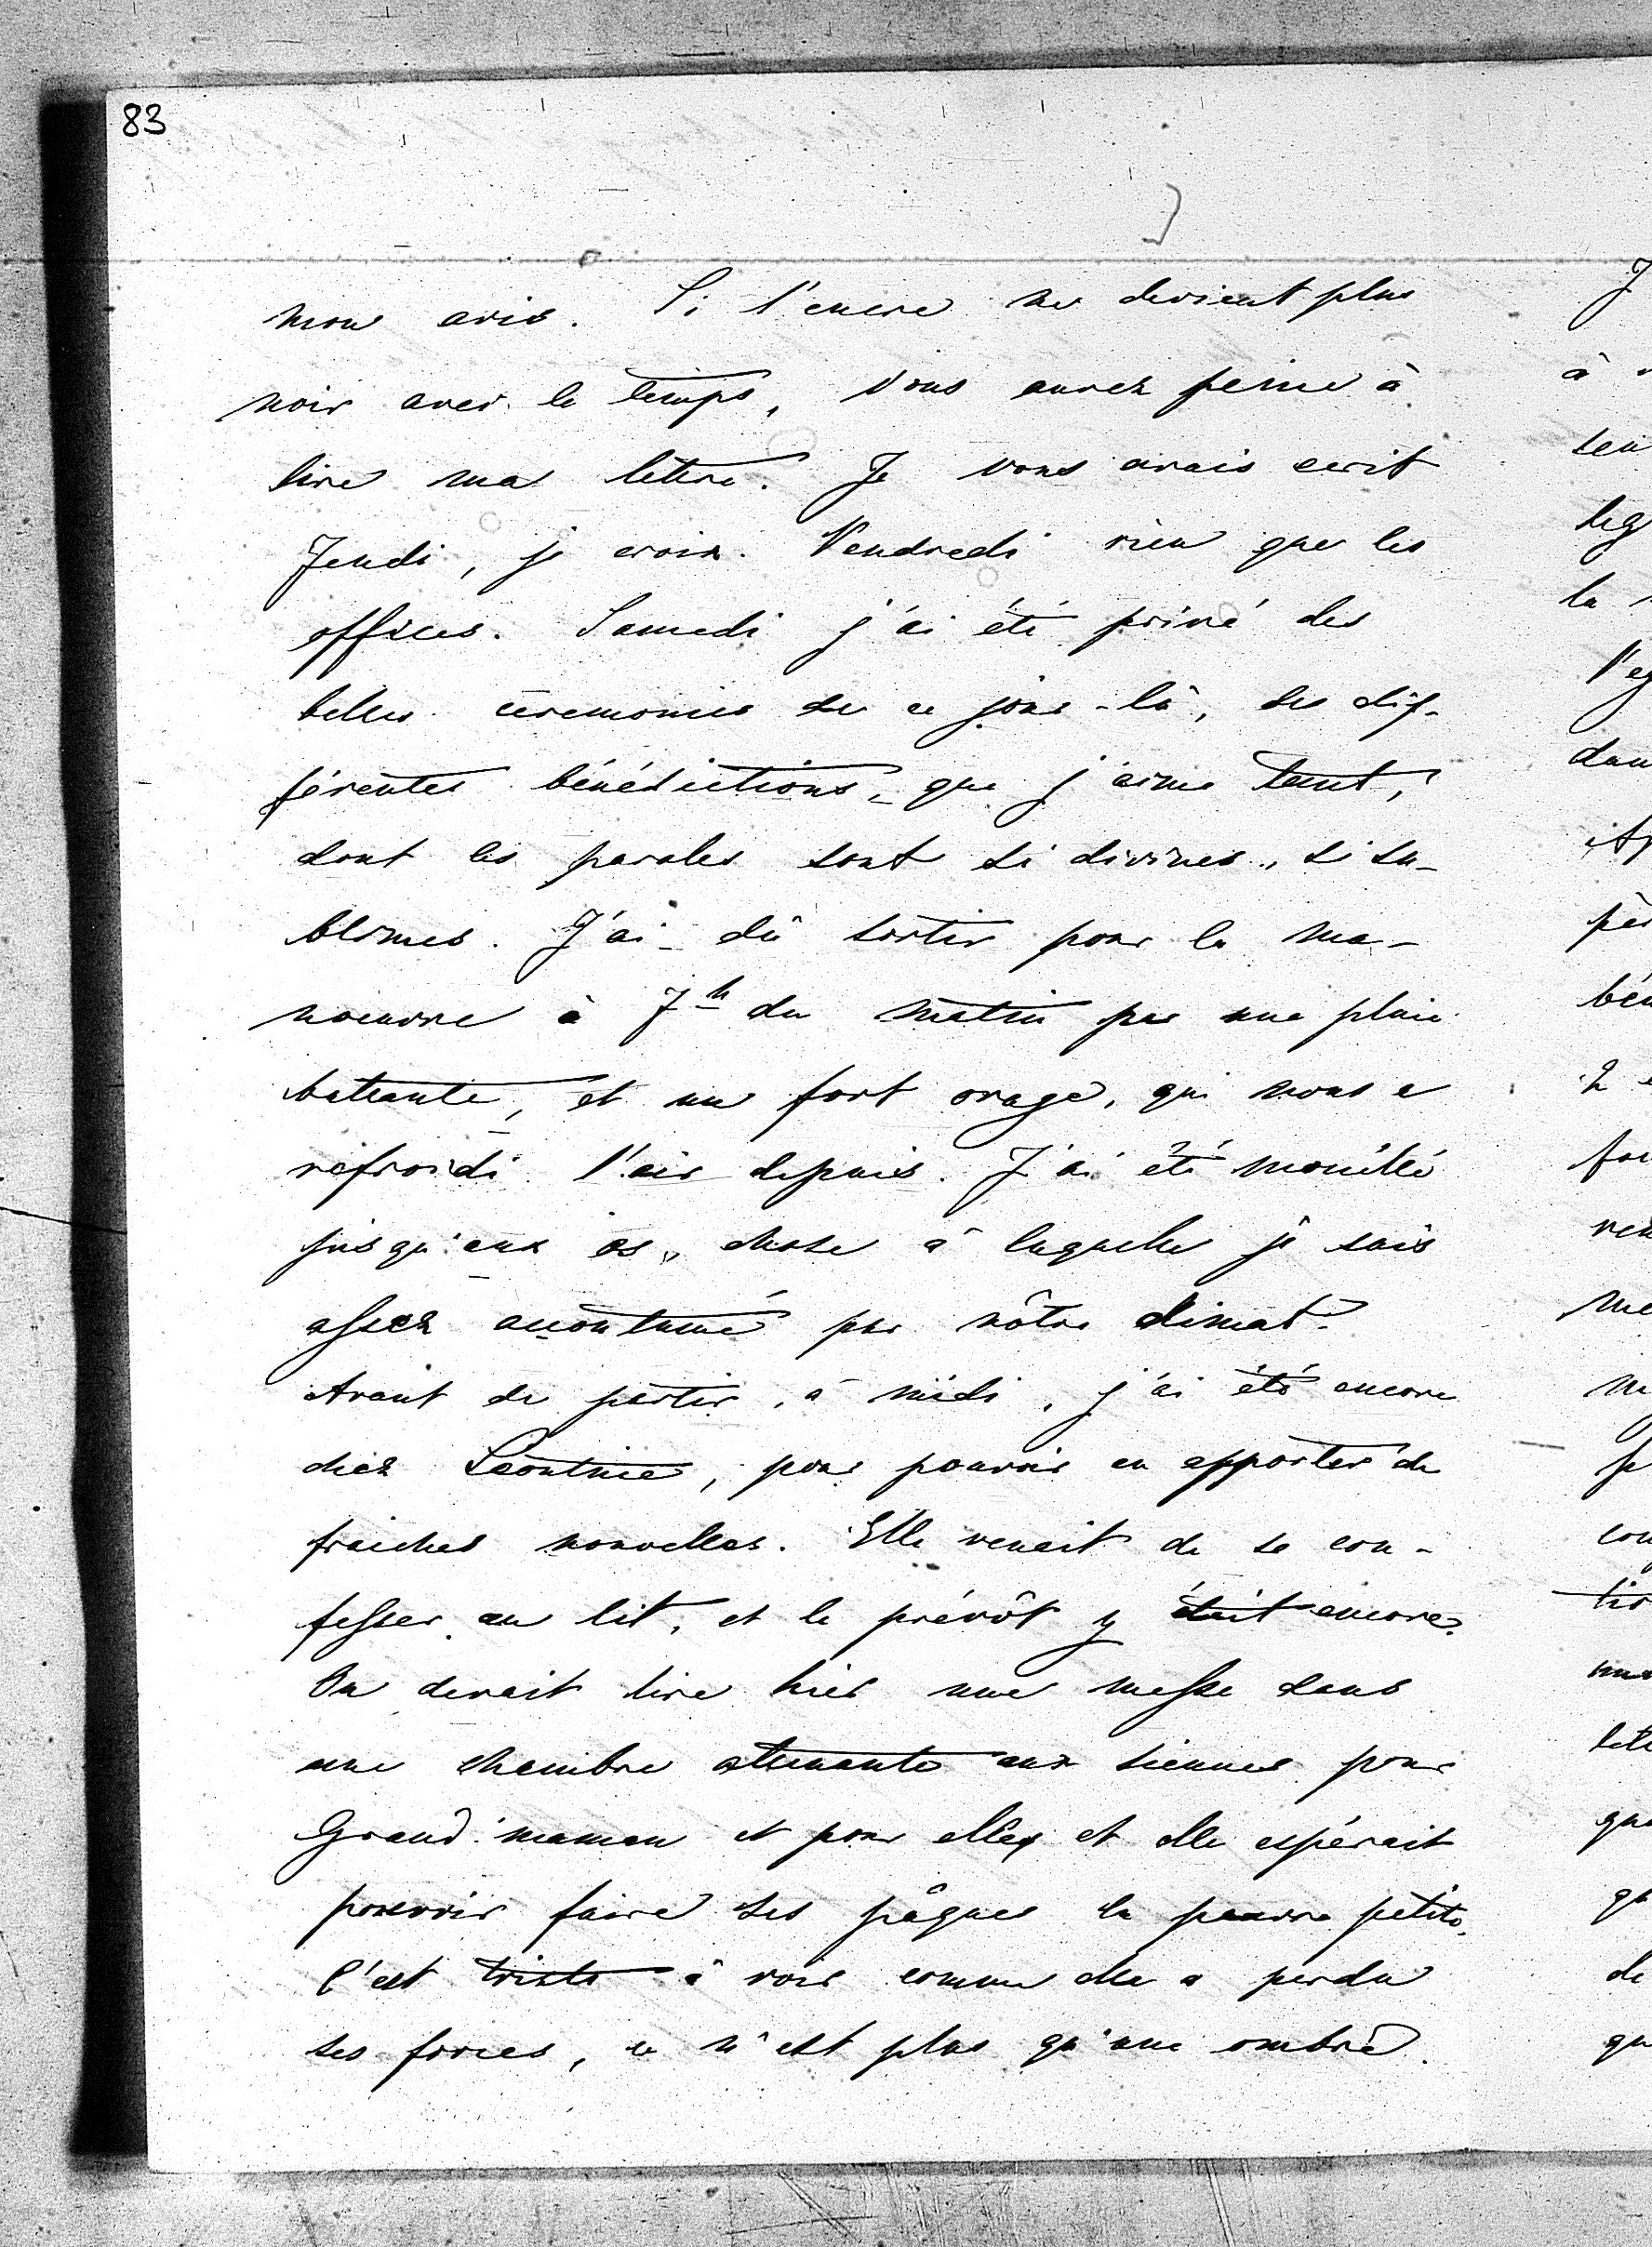 83
mon avis. Si l'encre ne devient plus
noir avec le temps, vous aurez peine à
lire ma lettre. Je vous avais ecrit
Jeudi, je crois. Vendredi rien que les
offices. Samedi j'ai été privé des
belles cèremonies de ce jour-là, des dif-
férentes bénédictions, que j'aime tant,
dont les paroles sont si divines, si su-
blimes. J'ai dû sortir pour la ma-
noeuvre à 7h du matin par une pluie
battante, et un fort orage, qui nous a
refroidi l'air depuis. J'ai été mouillé
jusqu'aux os, chose à laquelle je suis
assez accoutumé par nôtre climat.
Avant de partir, à midi, j'ai été encore
chez Léontine, pour pouvoir en apporter de
fraiches nouvelles. Elle venait de se con-
fesser au lit, et le prévôt y était encore.
On devait lire hier une messe dans
une chambre attenante aux siennes pour
Grand'maman et pour elle, et elle espérait
pouvoir faire ses pâques la pauvre petite.
C'est triste à voir comme elle a perdu
ses forces, ce n'est plus qu'une ombre.
J
à
sen
leg
la
l'eg
dan
Ap
pèr
bén
2
for
ven
me
m
je
con
tir
lett
que
qu
de
qu